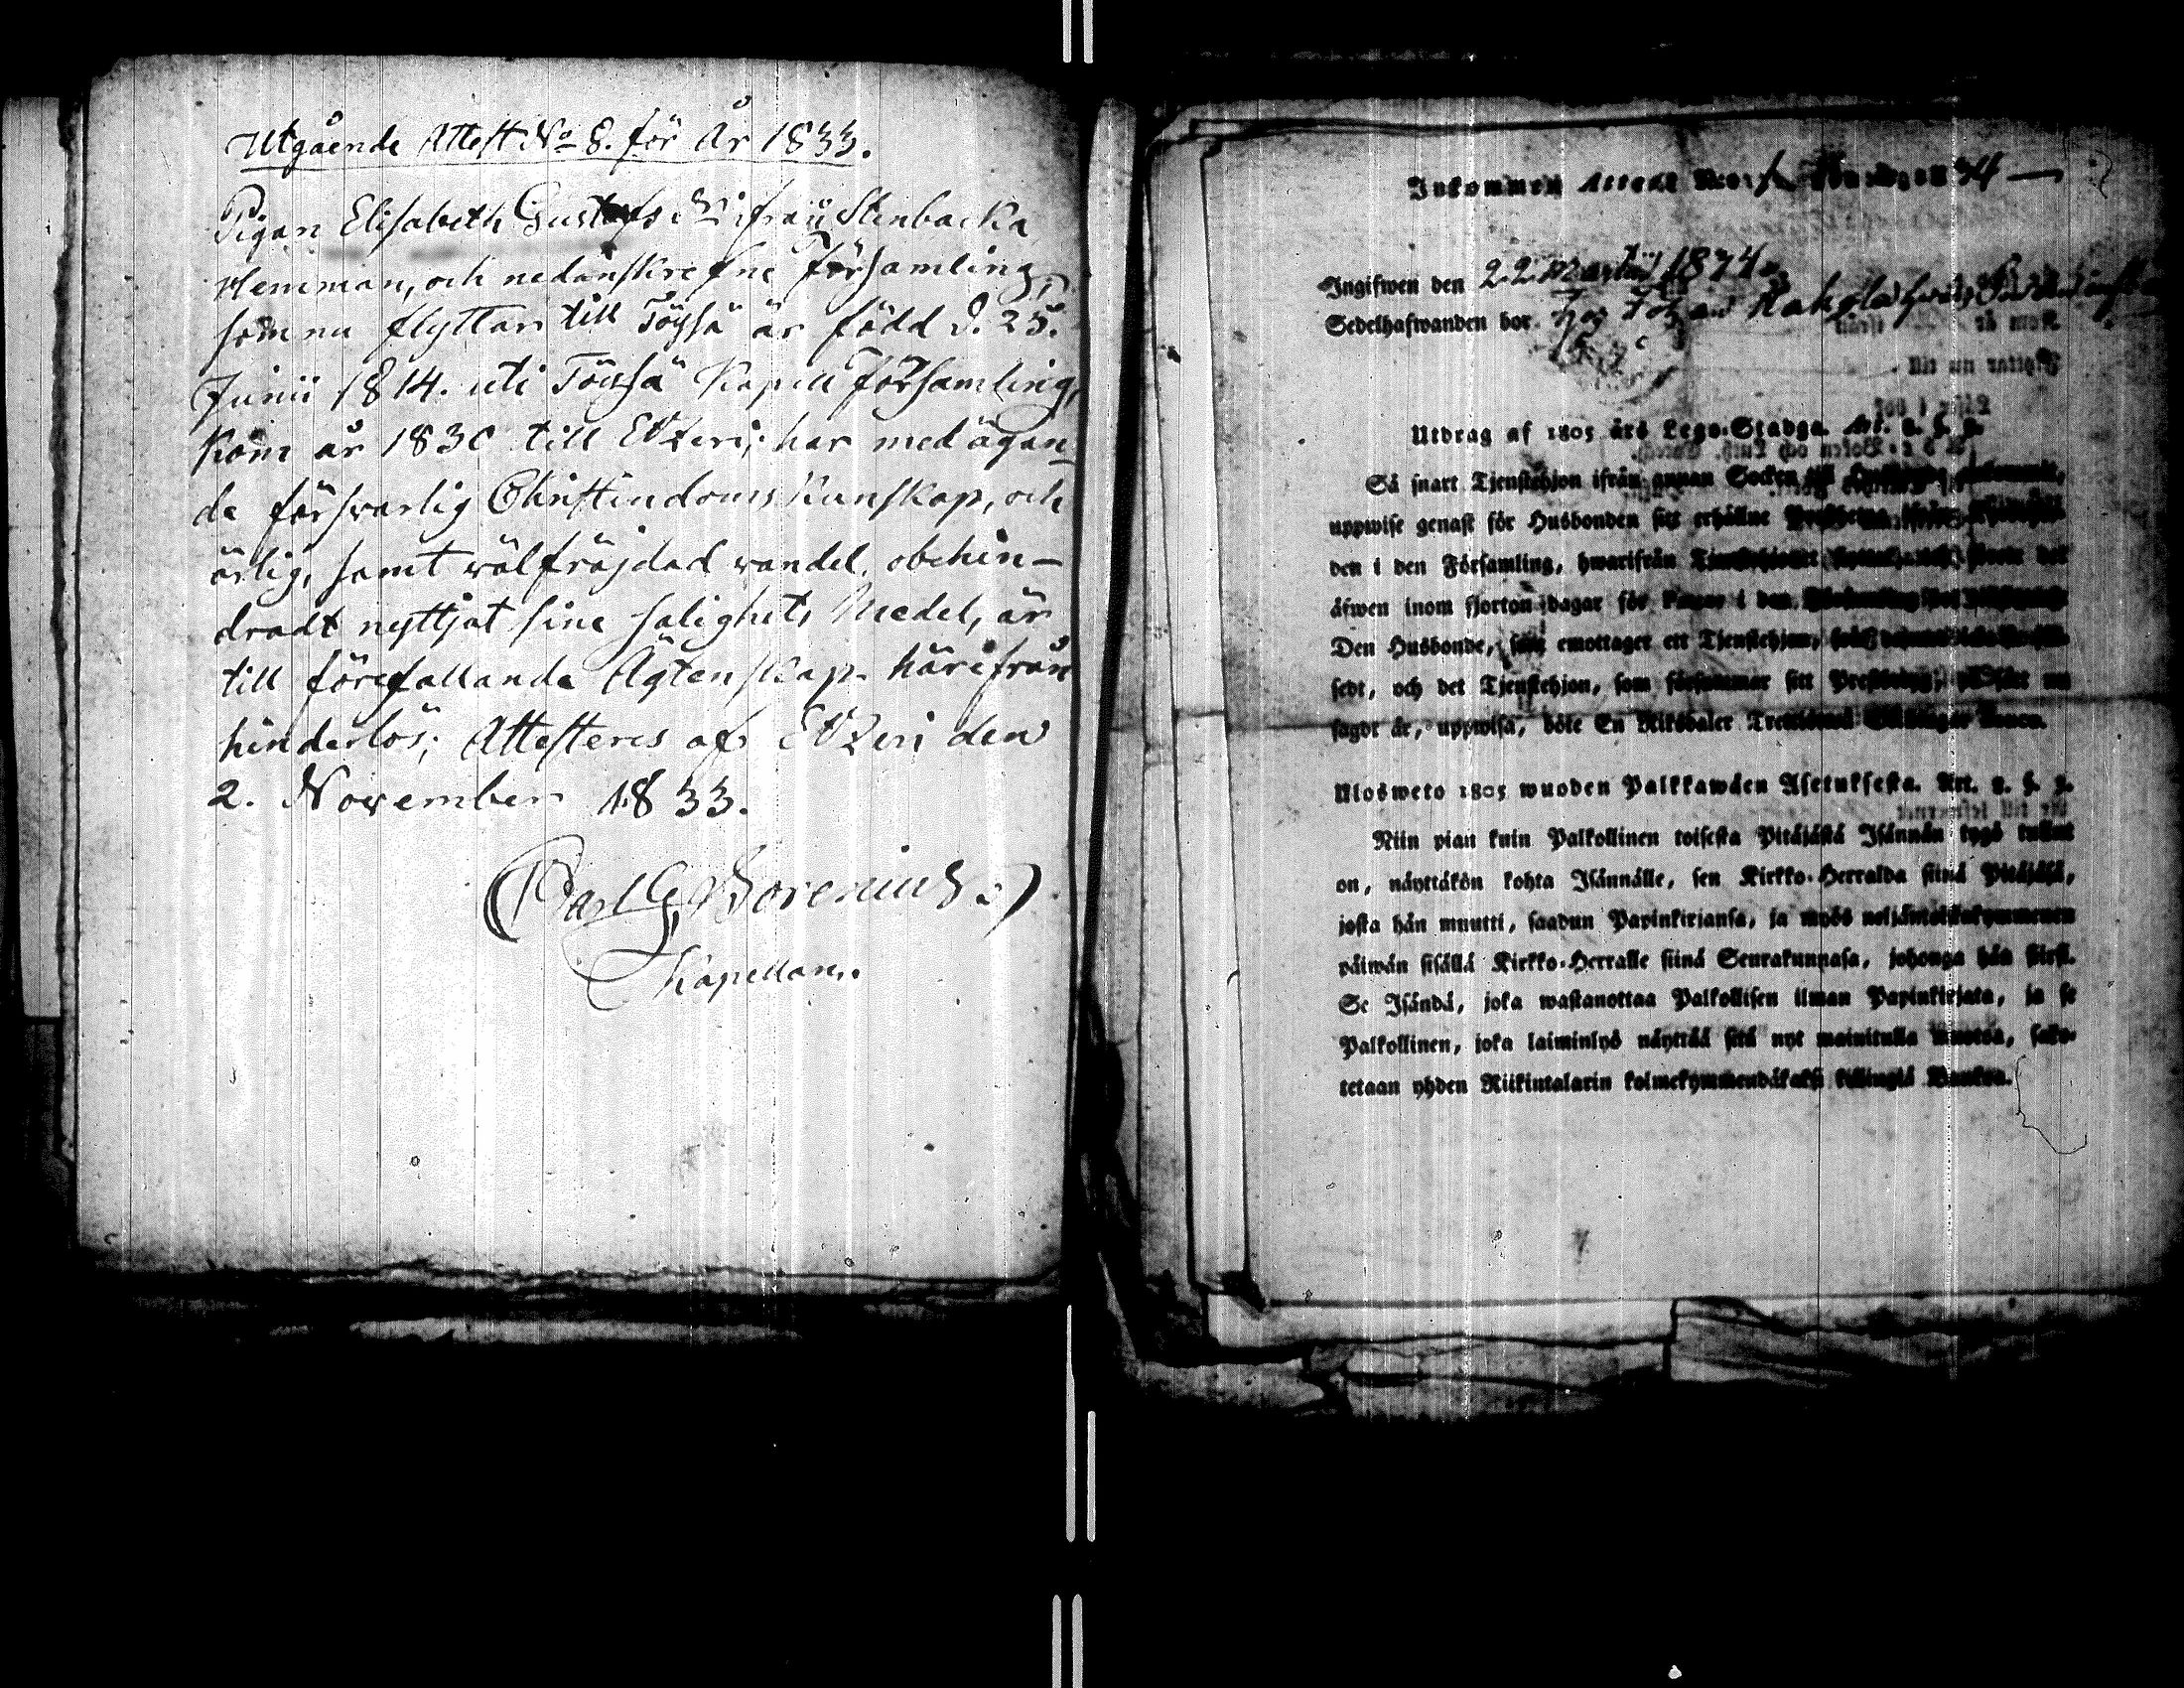 Utgående Attest No 8. för År 1833.
Pigan Elisabeth Gustafs Dr ifrån Stenbacka
Hemman, och nedanskrefne Församling,
som nu flyttar till Töysä är född d. 25.
Junii 1814. uti Töysä Kapell Församling,
Kom år 1830 till Etzeri; har med ägan-
de försvarlig Christendoms Kunskap, och
ärlig, samt wälfräjdad wandel, obehin-
dradt nyttjat sine salighets Medel, är
till förefallande Ägtenskap härifrån
hinderlös; Attesteras af Etzeri den
2. November 1833.
Carl G. Borenius.
Kapellan.
Inkommen Attest
Ingifwen den 22 Martii 1834.
Sedelhafwanden bor hos Johan
Utdrag af 1805 års Lego-Stadga. Art. 2. §. 9.
Så snart Tjenstehjon ifrån annan Socken till
uppwise genast för Husbonden sitt erhållne
den i den Församling, hwarifrån
äfwen inom fjorton dagar för
Den Husbonde, som emottager ett Tjenstehjon,
sedt, och det Tjenstehjon, som försummar sitt
sagdt är, uppwisa, böte En Riksdaler Trettiotwå Skillingar Banco.
Ulosweto 1805 wuoden Palkkawäen Asetuksesta. Art. 2. §. 9.
Niin pian kuin Palkollinen toisesta Pitäjästä Isännän tygö tullut
on, näyttäkön kohta Isännälle, sen Kirkko-Herralda siinä Pitäjäsä,
josta hän muutti, saadun Papinkirjansa, ja myös neljäntoistakymmenen
päiwän sisällä Kirkko-Herralle siinä Seurakunnasa, johonga hän siirsi.
Se Isändä, joka wastanottaa Palkollisen ilman Papinkirjata, ja se
Palkollinen, joka laiminlyö näyttää sitä nyt mainitulla muotoa, sako-
tetaan yhden Riikintalarin kolmekymmendäkaksi killingiä Bankoa.